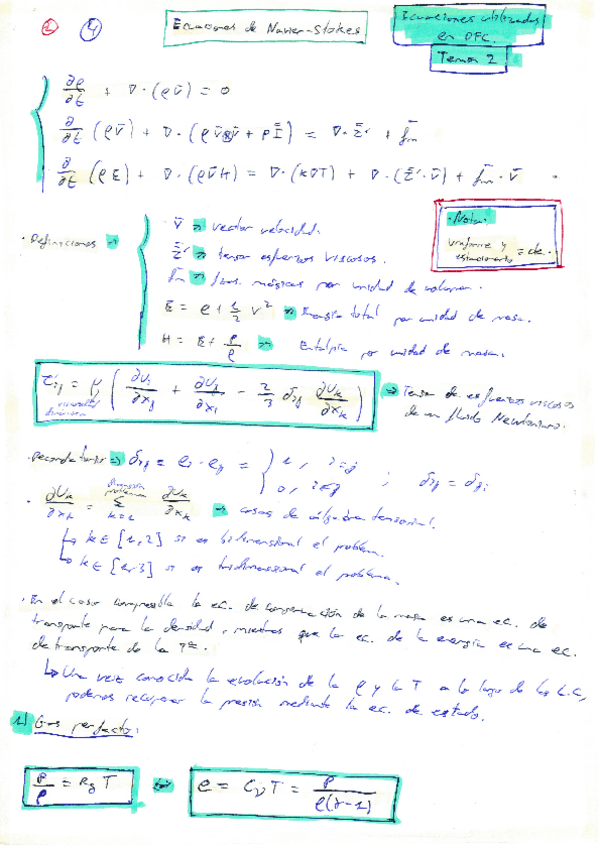 Ecuaciones de Navier-Stokes
Ecuaciones utilizadas
en DFC.
Tema 2
∂ρ/∂t + ∇·(ρv̄) = 0
∂/∂t (ρv̄) + ∇·(ρv̄⊗v̄ + pĪ) = ∇·τ̄' + f̄m
∂/∂t (ρE) + ∇·(ρv̄H) = ∇·(k∇T) + ∇·(τ̄'·v̄) + f̄m·v̄
· Nota:
uniforme y
estacionario = cte.
· Definiciones ⇒
v̄ ⇒ vector velocidad.
τ̄' ⇒ tensor esfuerzos viscosos.
f̄m ⇒ fzas. másicas por unidad de volumen.
E = e + 1/2 v² ⇒ Energía total por unidad de masa.
H = E + p/ρ ⇒ Entalpía por unidad de masa.
τ'ij = μ (∂vi/∂xj + ∂vj/∂xi − 2/3 δij ∂vk/∂xk) ⇒ Tensor de esfuerzos viscosos
de un fluido Newtoniano.
viscosidad
dinámica
⇒ δij = ei · ej = { 1, i=j ; δij = δji
0, i≠j
dimensión
problema
· ∂vk/∂xk = Σ k=1 ∂vk/∂xk ⇒ cosas de álgebra tensorial.
↳ k∈[1,2] si es bidimensional el problema.
↳ k∈[1,3] si es tridimensional el problema.
· En el caso compresible la ec. de conservación de la masa es una ec. de
transporte para la densidad, mientras que la ec. de la energía es una ec.
de transporte de la Tª.
↳ Una vez conocida la evolución de la ρ y la T a lo largo de las L.C,
podemos recuperar la presión mediante la ec. de estado.
1) Gas perfecto:
p/ρ = Rg T
e = Cv T = p/ρ(γ−1)